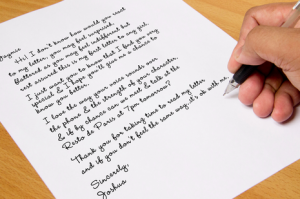 Hi! I don't know how would you react
to my letter, you may feel surprised,
flattered or you may feel indifferent but
rest assured this is my first letter to any girl.
I just want you to know that I find you very
special & I hope you'll give me a chance to
know you better.
I love the way your voice sounds over
the phone & the strength of your character,
& if by chance can we meet & talk at the
Resto de Paris at 7pm tomorrow?
Thank you for taking time to read my letter
and if you don't feel the same way, it's ok with me
Sincerely,
Joshua